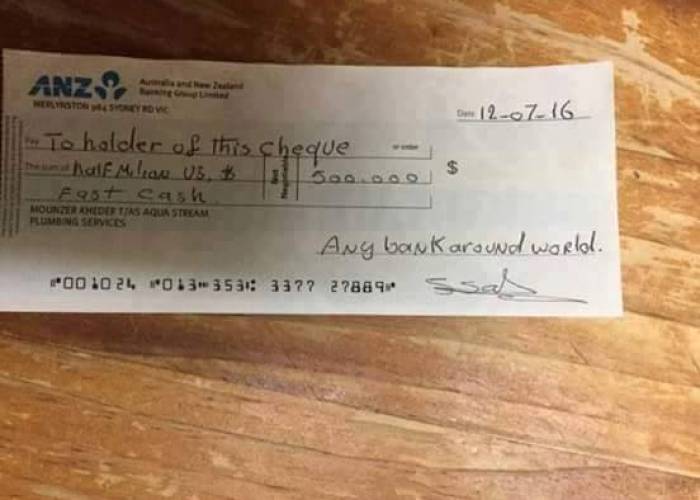 ANZ
Australia and New Zealand
Banking Group Limited
MERLYNSTON 984 SYDNEY RD VIC
Date 12-07-16
Pay To holder of this cheque or order
The sum of half Milion US, $ 500.000 $
Not Negotiable
Fast cash
MOUNZER KHEDER T/AS AQUA STREAM
PLUMBING SERVICES
Any bank around world.